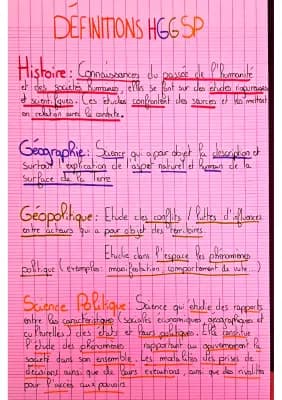 DÉFINITIONS HGGSP
Histoire : Connaissances du passée de l'humanité
et des sociétés humaines, elles se font sur des études rigoureuses
et scientifiques. Les études confrontent des sources et les mettent
en relation avec le contexte.
Géographie : Science qui a pour objet la description et
surtout l'explication de l'aspet naturel et humain de la
surface de la Terre
Géopolitique : Etude des conflits / luttes d'influences
entre acteurs qui a pour objet des territoires.
Etudie dans l'espace les phénomènes
politique (exemples : manifestation, comportement du vote...)
Science Politique : Science qui étudie des rapports
entre les caractéristiques (sociales, économiques, géographiques et
culturelles) des états et leurs politiques. Elle constitue
l'étude des phénomènes rapportant au gouvernement la
société dans son ensemble. Les modalités des prises de
décisions ainsi que de leurs exécutions, ainsi que des rivalités
pour l'accès aux pouvoirs